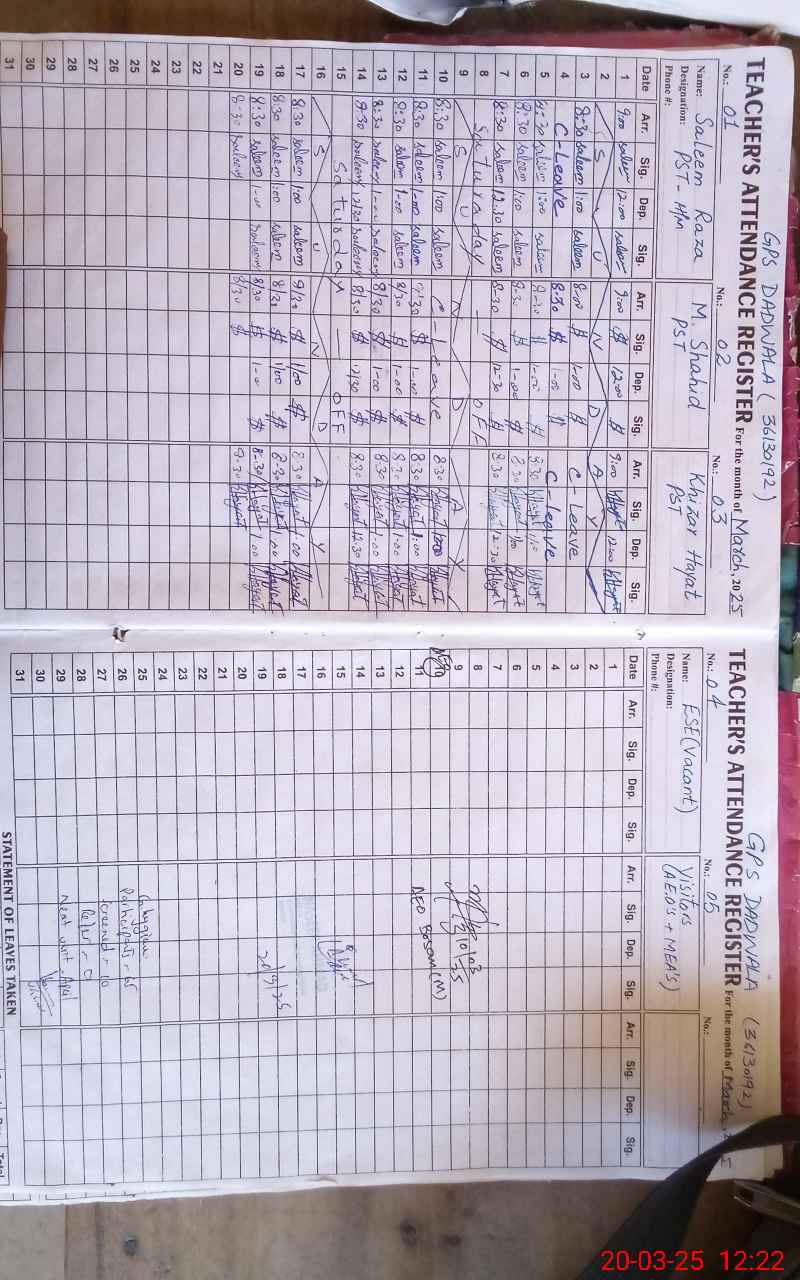 GPS DADWALA (36130192)
TEACHER'S ATTENDANCE REGISTER For the month of March, 2025
No.: 01 No.: 02 No.: 03
Name: Saleem Raza M. Shahid Khizar Hayat
Designation: PST-H/M PST PST
Phone #:
Date Arr. Sig. Dep. Sig. Arr. Sig. Dep. Sig. Arr. Sig. Dep. Sig.
1 9:00 saleem 12:00 saleem 9:00 12:00 9:00 Hayat 12:00 Hayat
2 S U N D A Y
3 8:30 saleem 1:00 saleem 8-00 1-00 C-Leave
4 C-Leave 8:30 1-00 C-Leave
5 8:30 saleem 1:00 saleem 8-30 1-00 8:30 Hayat 1:00 Hayat
6 8:30 saleem 1:00 saleem 8:30 1-00 8:30 Hayat 1:00 Hayat
7 8:30 saleem 12:30 saleem 8-30 12-30 8:30 Hayat 12:30 Hayat
8 Saturaday - OFF
9 S U N D A Y
10 8:30 saleem 1:00 saleem C-Leave 8:30 Hayat 1:00 Hayat
11 8:30 saleem 1-00 saleem 8/30 1-00 8:30 Hayat 1:00 Hayat
12 8:30 saleem 1-00 saleem 8/30 1-00 8:30 Hayat 1:00 Hayat
13 8:30 saleem 1-00 saleem 8/30 1-00 8:30 Hayat 1:00 Hayat
14 8:30 saleem 12/30 saleem 8/30 12/30 8:30 Hayat 12:30 Hayat
15 Saturday - OFF
16 S U N D A Y
17 8:30 saleem 1:00 saleem 8/30 1/00 8:30 Hayat 1:00 Hayat
18 8:30 saleem 1:00 saleem 8/30 1/00 8:30 Hayat 1:00 Hayat
19 8:30 saleem 1-00 saleem 8/30 1-00 8-30 Hayat 1:00 Hayat
20 8:30 saleem 8/30 8:30 Hayat
21
22
23
24
25
26
27
28
29
30
31
GPS DADWALA (36130192)
TEACHER'S ATTENDANCE REGISTER For the month of March, 2025
No.: 04 No.: 05 No.:
Name: ESE(Vacant) Visitors
Designation: (A.E.O's + MEA'S)
Phone #:
Date Arr. Sig. Dep. Sig. Arr. Sig. Dep. Sig. Arr. Sig. Dep. Sig.
1
2
3
4
5
6
7
8
9 12/03/25
10
11 AEO Bosan (M)
12
13
14
15
16
17
18
19 20/3/25
20
21
22
23
24
25
26 Participants = 65
27 Screened = 10
28
29 Next visit = April
30
31
STATEMENT OF LEAVES TAKEN
20-03-25 12:22